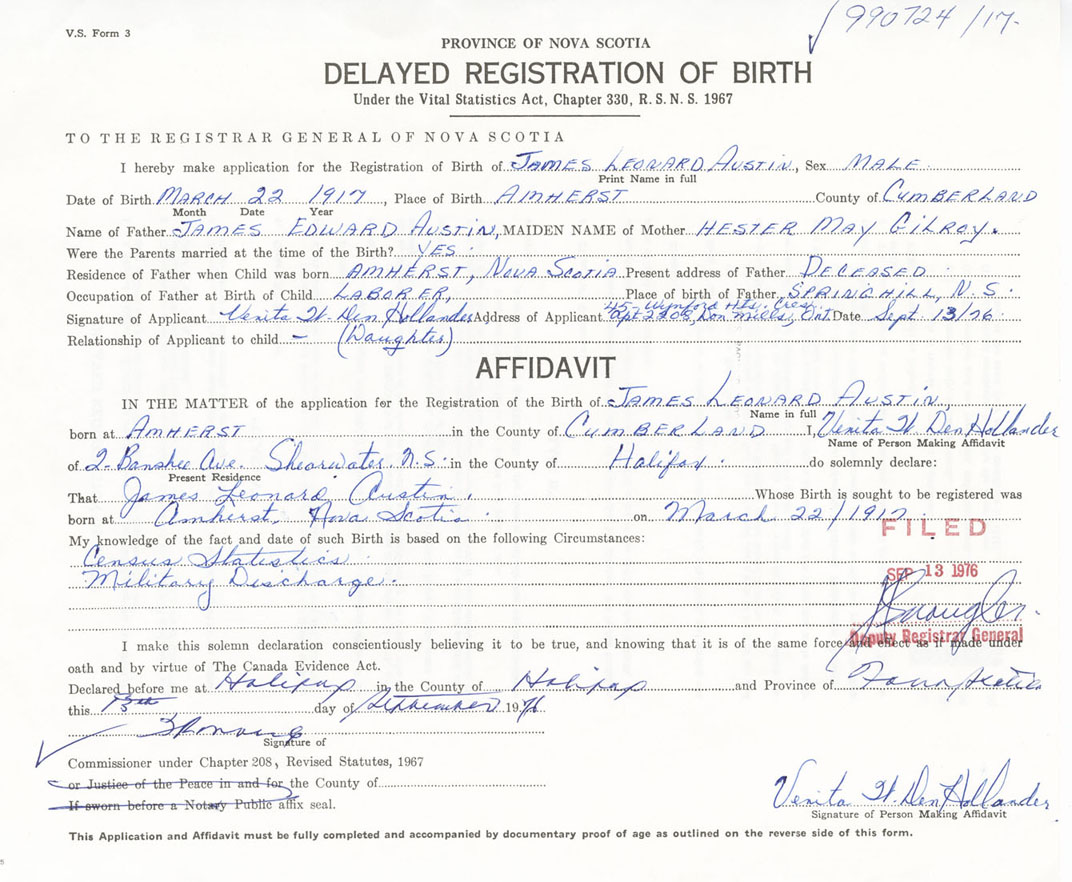 990724/17-
V.S. Form 3
PROVINCE OF NOVA SCOTIA
DELAYED REGISTRATION OF BIRTH
Under the Vital Statistics Act, Chapter 330, R.S.N.S. 1967
TO THE REGISTRAR GENERAL OF NOVA SCOTIA
I hereby make application for the Registration of Birth of JAMES LEONARD AUSTIN, Sex MALE
Print Name in full
Date of Birth MARCH 22 1917, Place of Birth AMHERST County of CUMBERLAND
Month Date Year
Name of Father JAMES EDWARD AUSTIN, MAIDEN NAME of Mother HESTER MAY GILROY.
Were the Parents married at the time of the Birth? YES
Residence of Father when Child was born AMHERST, NOVA SCOTIA Present address of Father DECEASED
Occupation of Father at Birth of Child LABORER, Place of birth of Father SPRINGHILL, N.S.
45-Wynford Hts. Cres.
Signature of Applicant Venita H. Den Hollander Address of Applicant Apt 2208, Don Mills, Ont Date Sept 13/76
Relationship of Applicant to child - (Daughter)
AFFIDAVIT
IN THE MATTER of the application for the Registration of the Birth of JAMES LEONARD AUSTIN,
Name in full
born at AMHERST in the County of CUMBERLAND I, Venita H. Den Hollander
Name of Person Making Affidavit
of 2-Banshee Ave. Shearwater N.S. in the County of Halifax do solemnly declare:
Present Residence
That James Leonard Austin, Whose Birth is sought to be registered was
born at Amherst, Nova Scotia on March 22/1917
FILED
My knowledge of the fact and date of such Birth is based on the following Circumstances:
Census Statistics
Military Discharge.
SEP 13 1976
Deputy Registrar General
I make this solemn declaration conscientiously believing it to be true, and knowing that it is of the same force and effect as if made under
oath and by virtue of The Canada Evidence Act.
Declared before me at Halifax in the County of Halifax and Province of Nova Scotia
this 13th day of September 1976
Signature of
Commissioner under Chapter 208, Revised Statutes, 1967
or Justice of the Peace in and for the County of
If sworn before a Notary Public affix seal.
Venita H. Den Hollander
Signature of Person Making Affidavit
This Application and Affidavit must be fully completed and accompanied by documentary proof of age as outlined on the reverse side of this form.